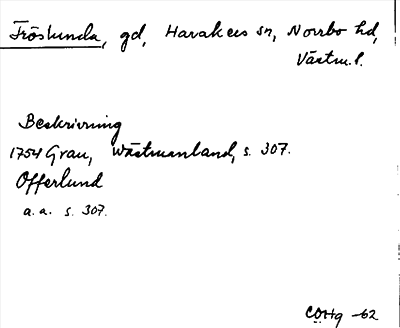 Fröslunda, gd, Harakers sn, Norrbo hd,
Västm.l.
Beskrivning
1754 Grau, Wästmanland, s. 307.
Offerlund
a.a. s. 307.
COHg -62